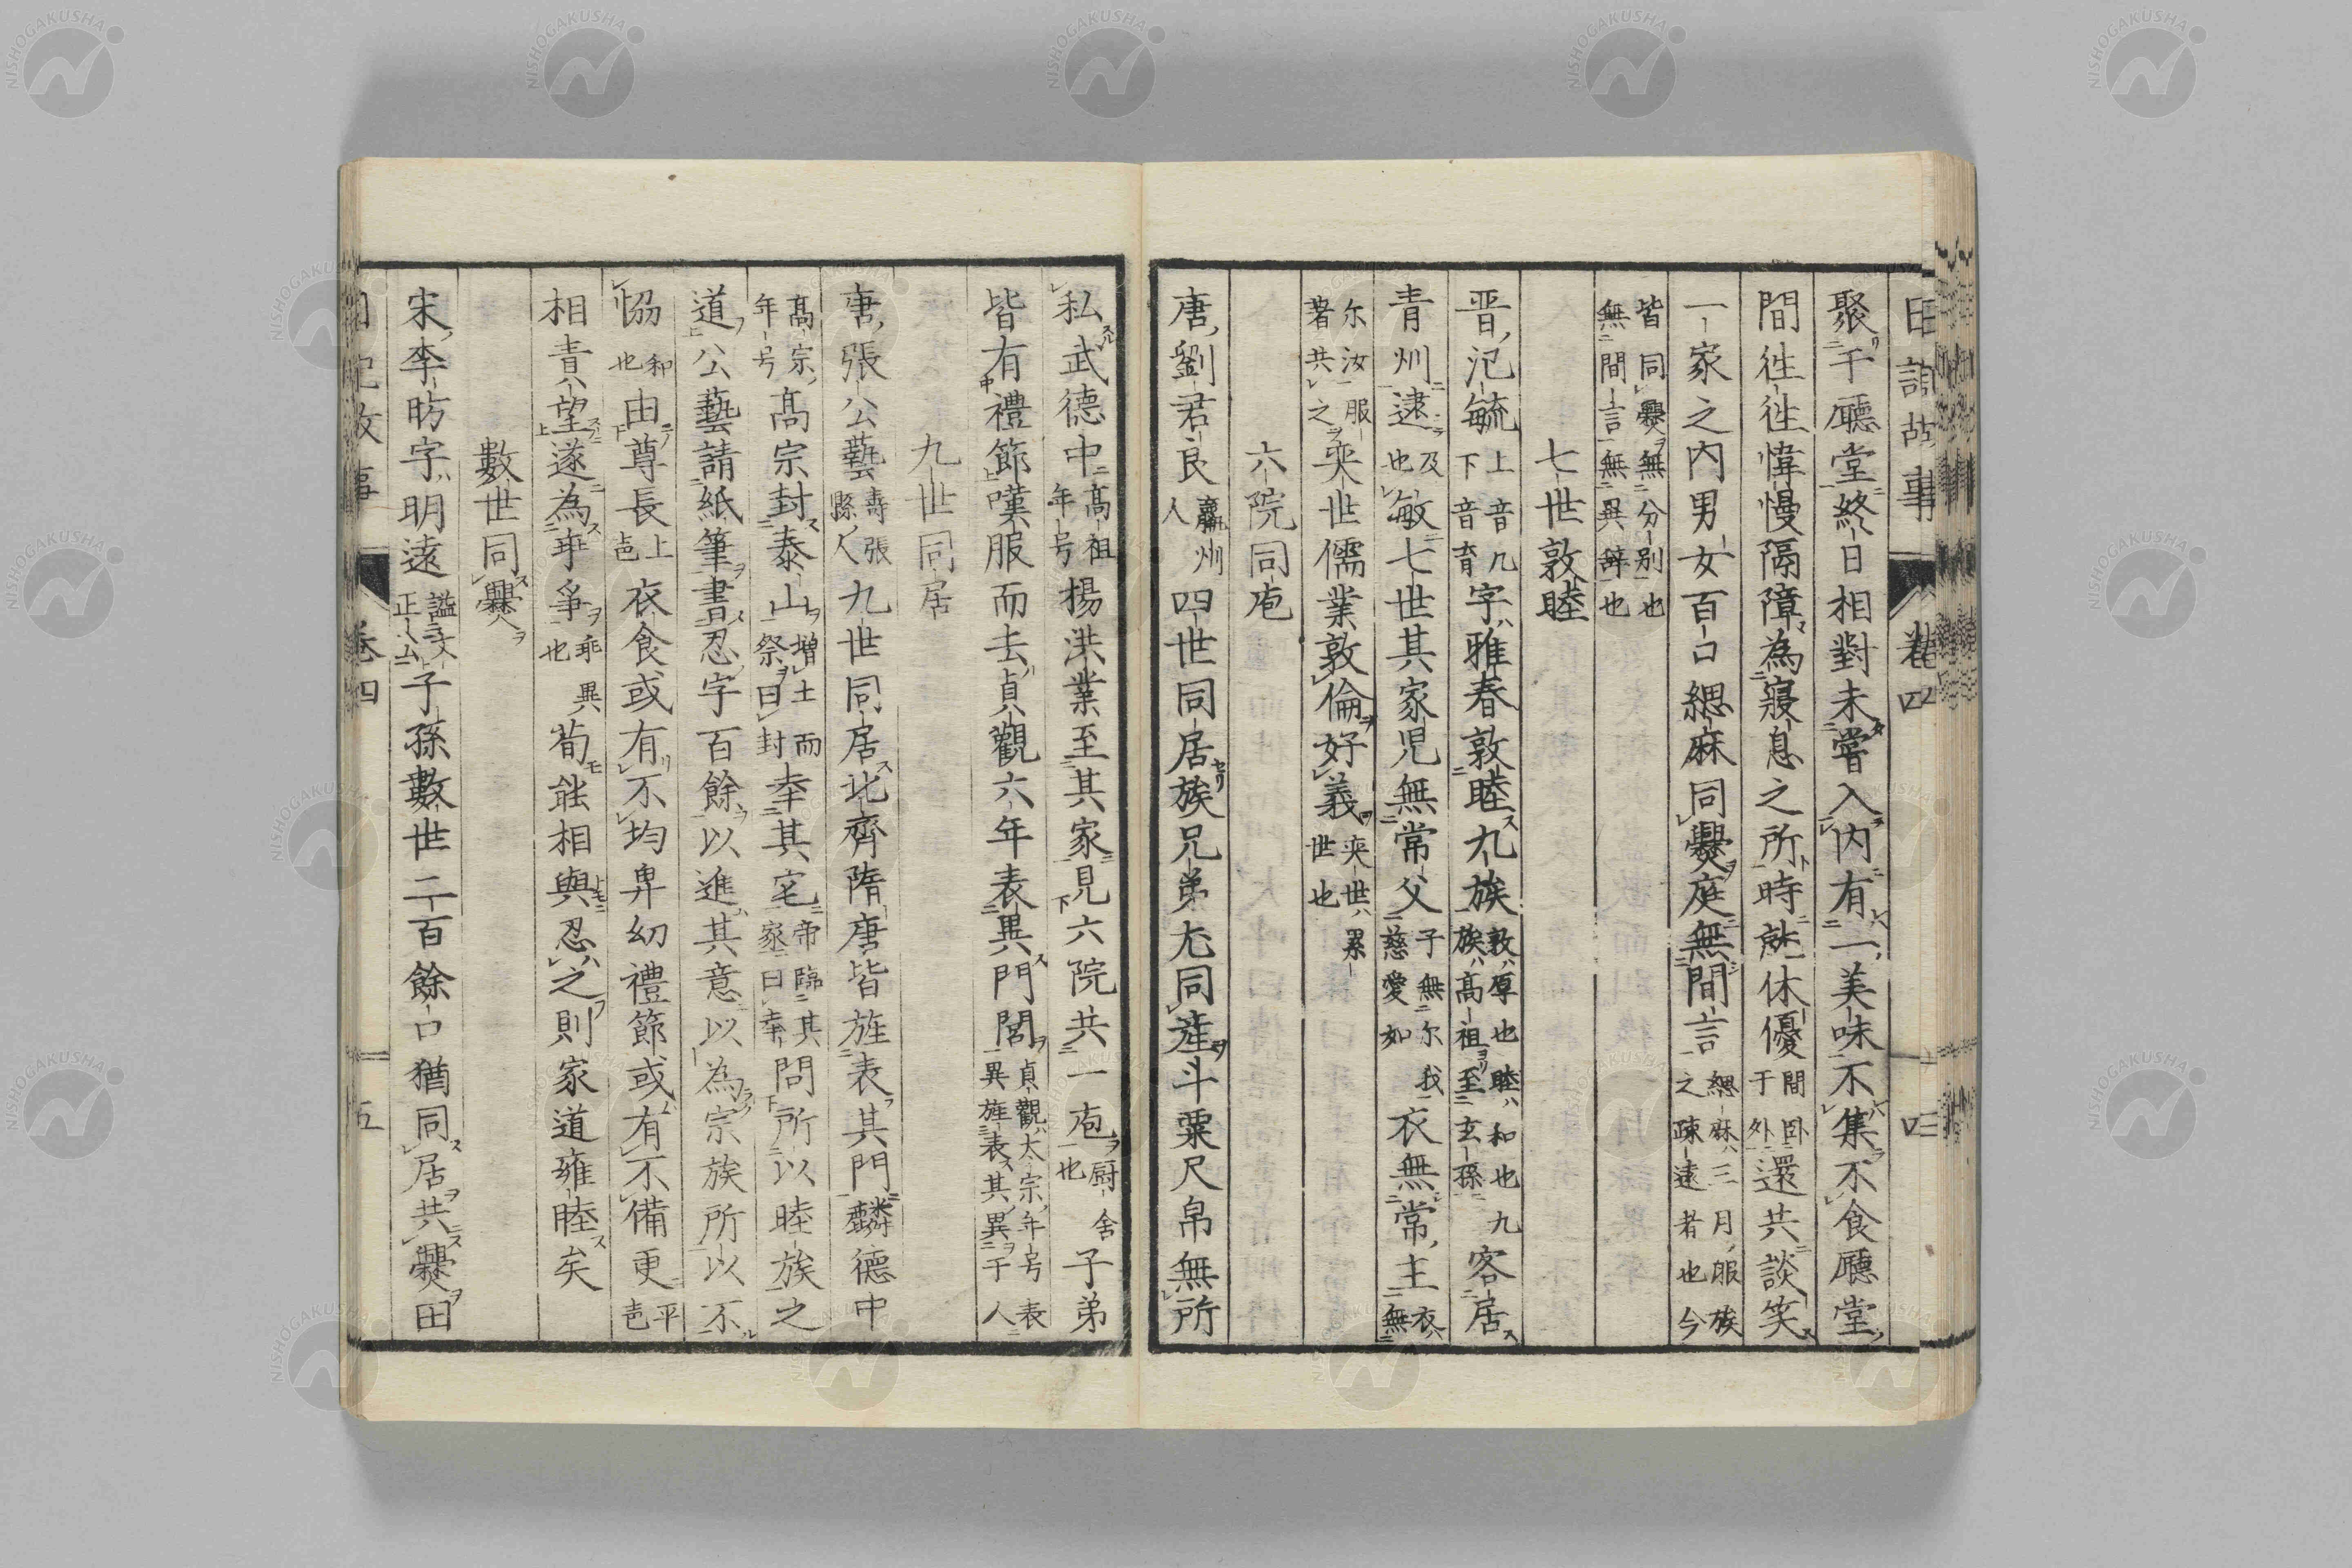 日記故事 卷四 四
聚于廳堂終日相對未嘗入內有一美味不集不食廳堂
間徃徃幃幔隔障為寢息之所時就休偃間卧于外還共談笑
一家之內男女百口緦麻同爨庭無間言緦麻三月服族之疎遠者也今
皆同爨無分别也無間言無異辞也
七世敦睦
晋氾毓上音凡下音育字雅春敦睦九族敦厚也睦和也九族高祖至玄孫客居
青州逮及也敏七世其家児無常父子無尔我慈愛如衣無常主衣無
尔汝服著共之奕世儒業敦倫好義奕世累世也
六院同庖
唐劉君良瀛州人四世同居族兄弟尤同產斗粟尺帛無所
私武德中高祖年号楊洪業至其家見六院共一庖厨舍也子弟
皆有禮節嘆服而去貞觀六年表異門閭貞觀太宗年号表異旌表其異于人
九世同居
唐張公藝壽張縣人九世同居北齊隋唐皆旌表其門麟德中
高宗年号高宗封泰山增土而祭曰封幸其宅帝臨其家曰幸問所以睦族之
道公藝請紙筆書忍字百餘以進其意以為宗族所以不
恊和也由尊長上㐁衣食或有不均卑幼禮節或有不備更平㐁
相責望遂為乖爭乖異也苟能相與忍之則家道雍睦矣
數世同爨
宋李昉字明遠謚文正公子孫數世二百餘口猶同居共爨田
日記故事 卷四 五